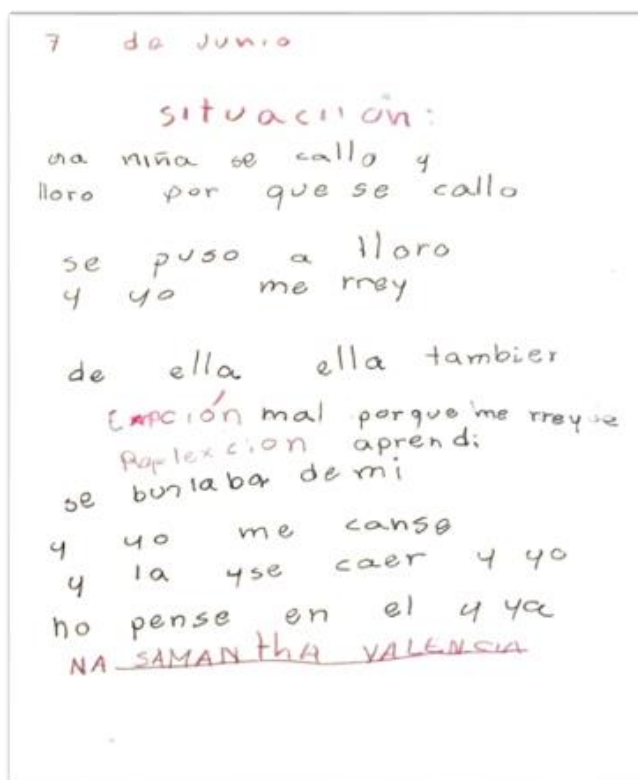 7 de Junio
situaciión:
una niña se callo y
lloro por que se callo
se puso a lloro
y yo me rrey
de ella ella tambier
Emoción mal porque me rreyse
Raplexcion aprendi
se burlaba de mi
y yo me canse
y la yse caer y yo
no pense en el y ya
NA SAMANthA VALENCIA